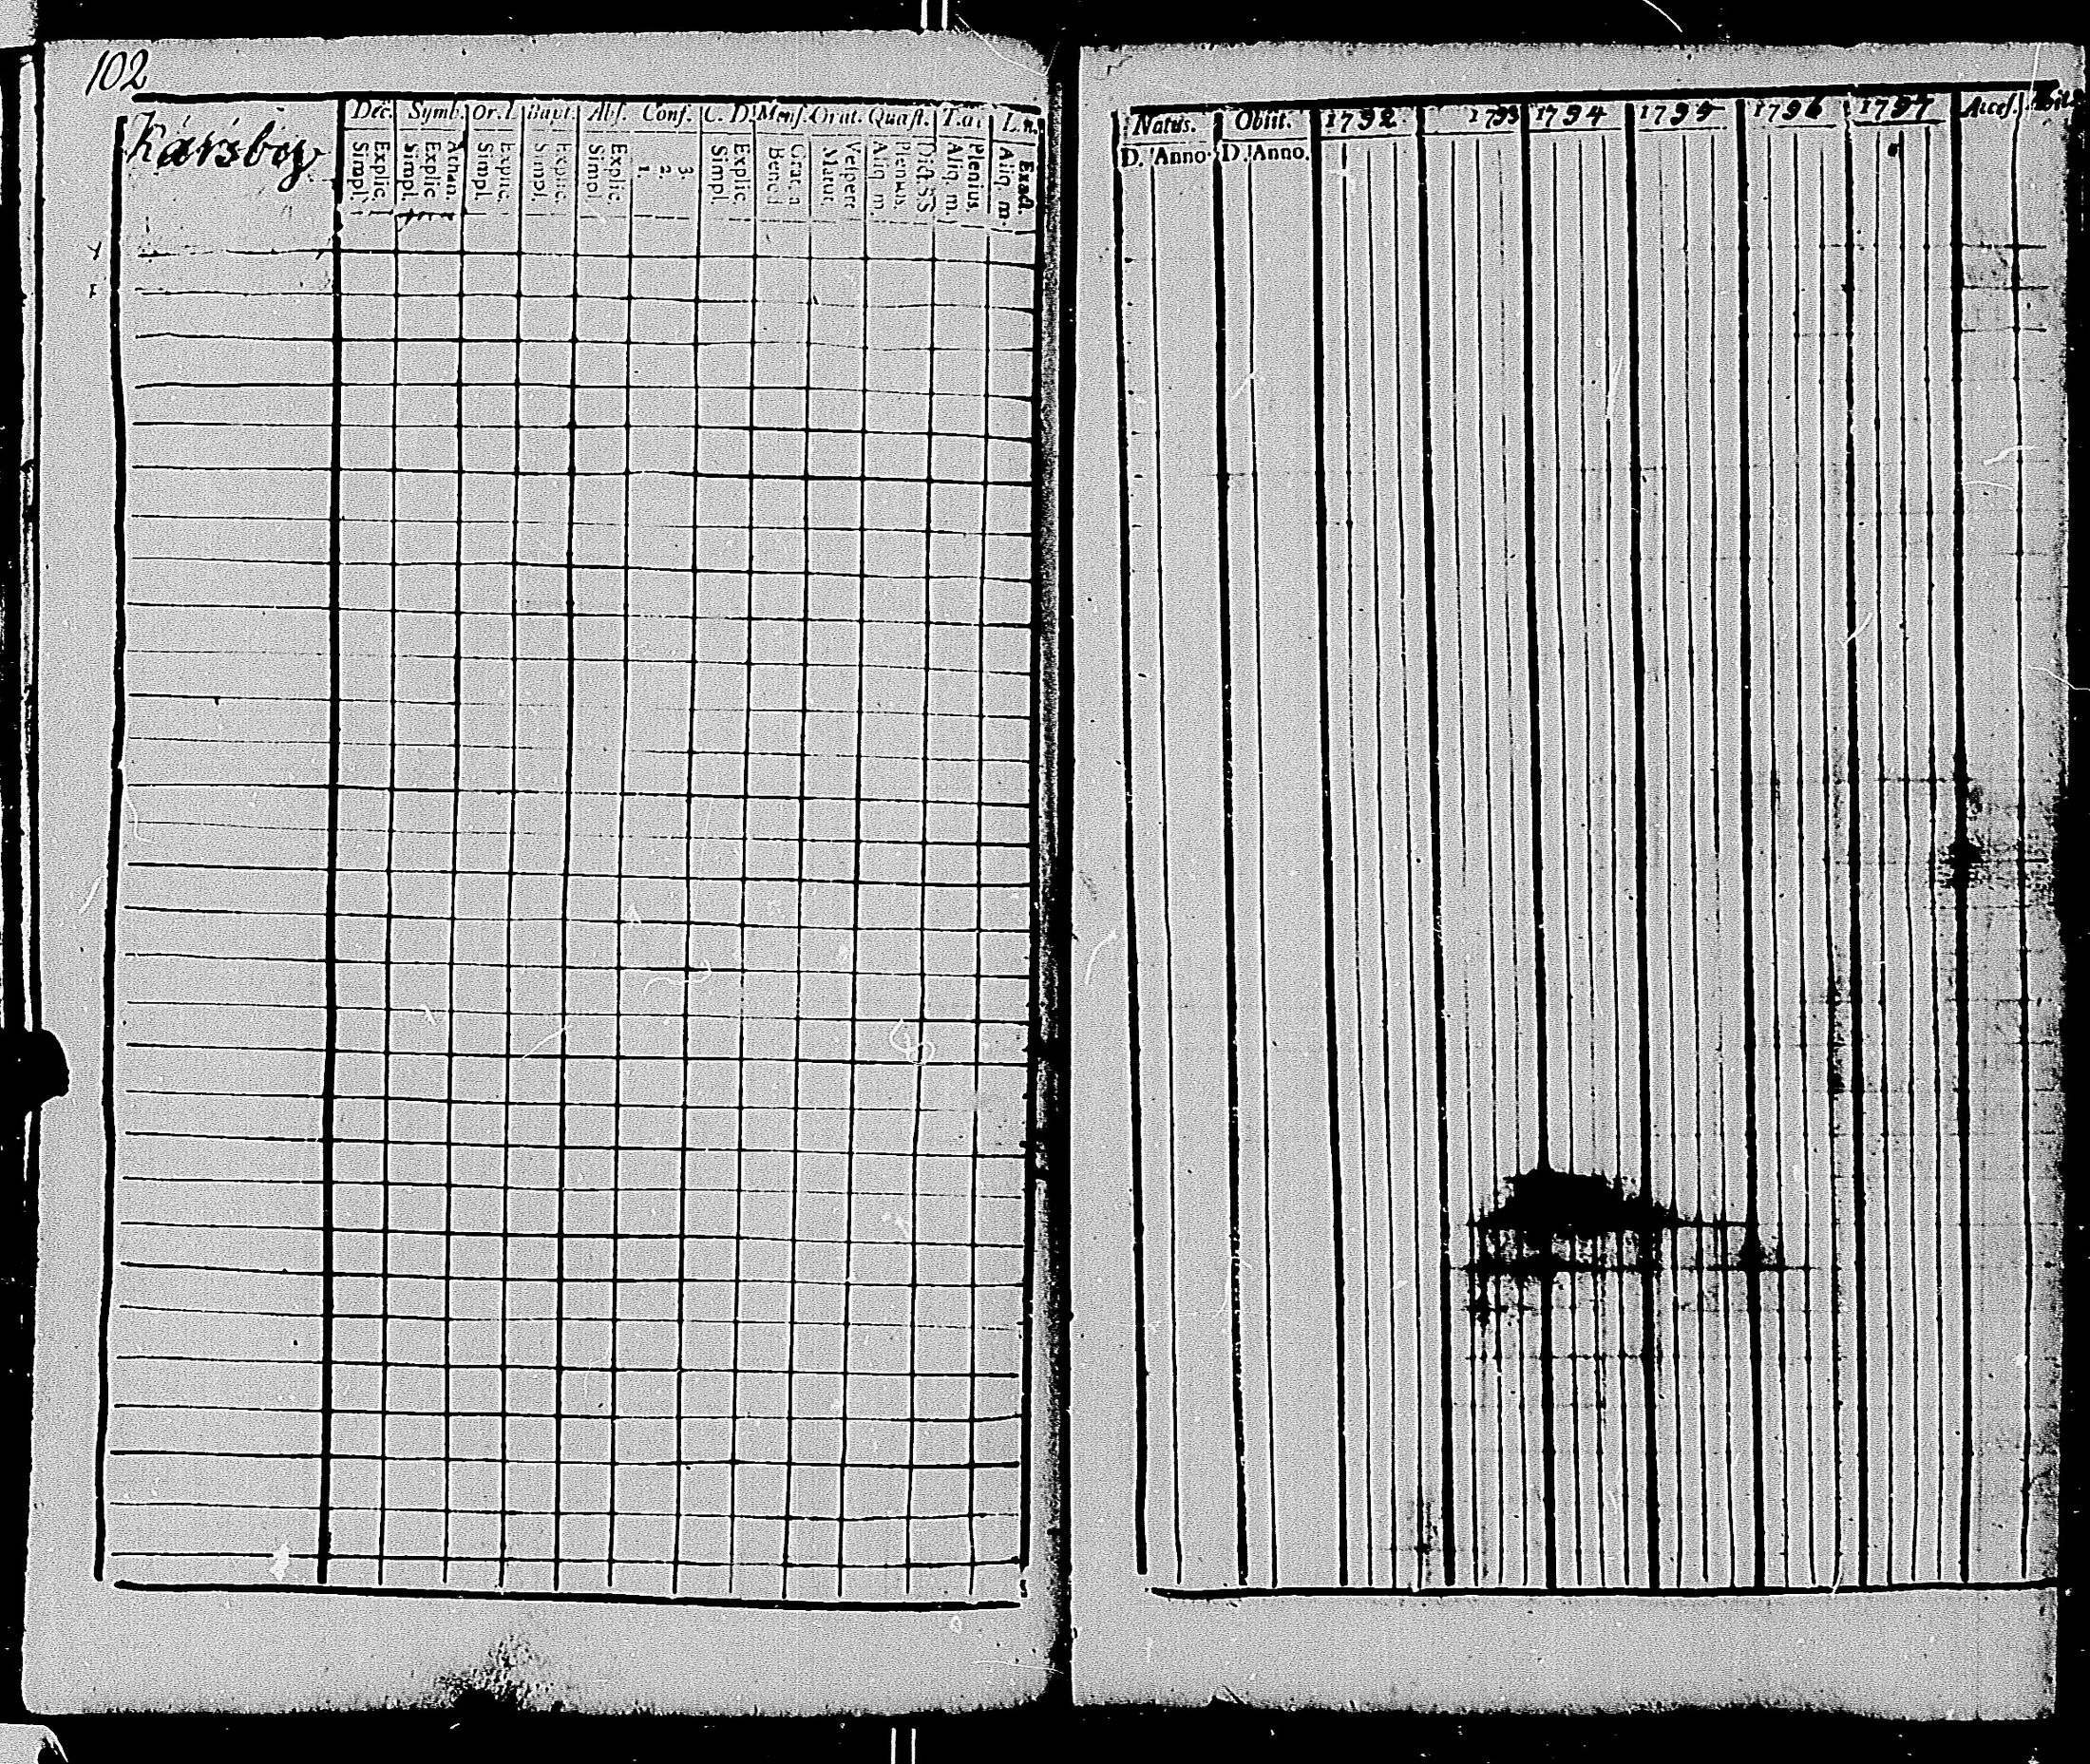 102
Kårsboy
Dec. Symb. Or. D. Bapt. Abs. Conf. C. D. Mens. Orat. Quæst. T. a. L. n.
Simpl. Explic. Simpl. Explic. Athan. Simpl. Explic. Simpl. Explic. Simpl. Explic. 1. 2. 3. Simpl. Explic. Bened. Grat. a Matut. Vespert. Aliq. m. Plenius. Dict. SS Aliq. m. Plenius. Aliq. m. Exact.
Natus. Obiit. 1792. 1793 1794 1795 1796 1797 Acces.
D. Anno. D. Anno.